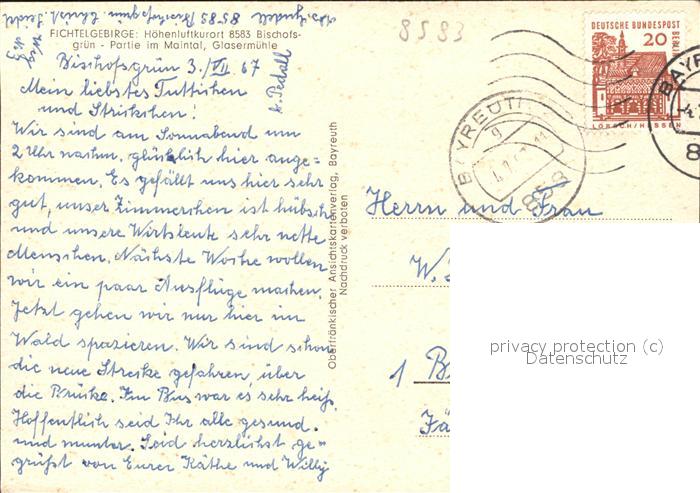 8583
FICHTELGEBIRGE: Höhenluftkurort 8583 Bischofs-
grün - Partie im Maintal, Glasermühle
Bischofsgrün 3./VII. 67
Mein liebstes Tuttichen
und Strickchen!
Wir sind am Sonnabend um
2 Uhr nachm. glücklich hier ange=
kommen. Es gefällt uns hier sehr
gut, unser Zimmerchen ist hübsch
und unsere Wirtsleute sehr nette
Menschen. Nächste Woche wollen
wir ein paar Ausflüge machen.
Jetzt gehen wir nur hier im
Wald spazieren. Wir sind schon
die neue Strecke gefahren, über
die Brücke. Im Bus war es sehr heiß.
Hoffentlich seid Ihr alle gesund
und munter. Seid herzlichst ge=
grüßt von Eurer Käthe und Willy
Oberfränkischer Ansichtskartenverlag, Bayreuth
Nachdruck verboten
DEUTSCHE BUNDESPOST
BERLIN
20
LORSCH/HESSEN
BAYREUTH
Herrn und Frau
W.
1 B
privacy protection (c)
Datenschutz